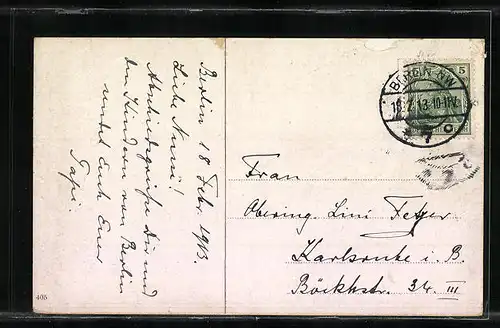 Berlin 18 Febr. 1913.
Liebe Numi!
Abschiedsgrüße Dir und
den Kindern von Berlin
sendet Euch Euer
Papi.
405
5
BERLIN NW
18.2.13.10-11V.
* 7 c
Frau
Obering. Lini Fetzer
Karlsruhe i. B.
Böckhstr. 34 III